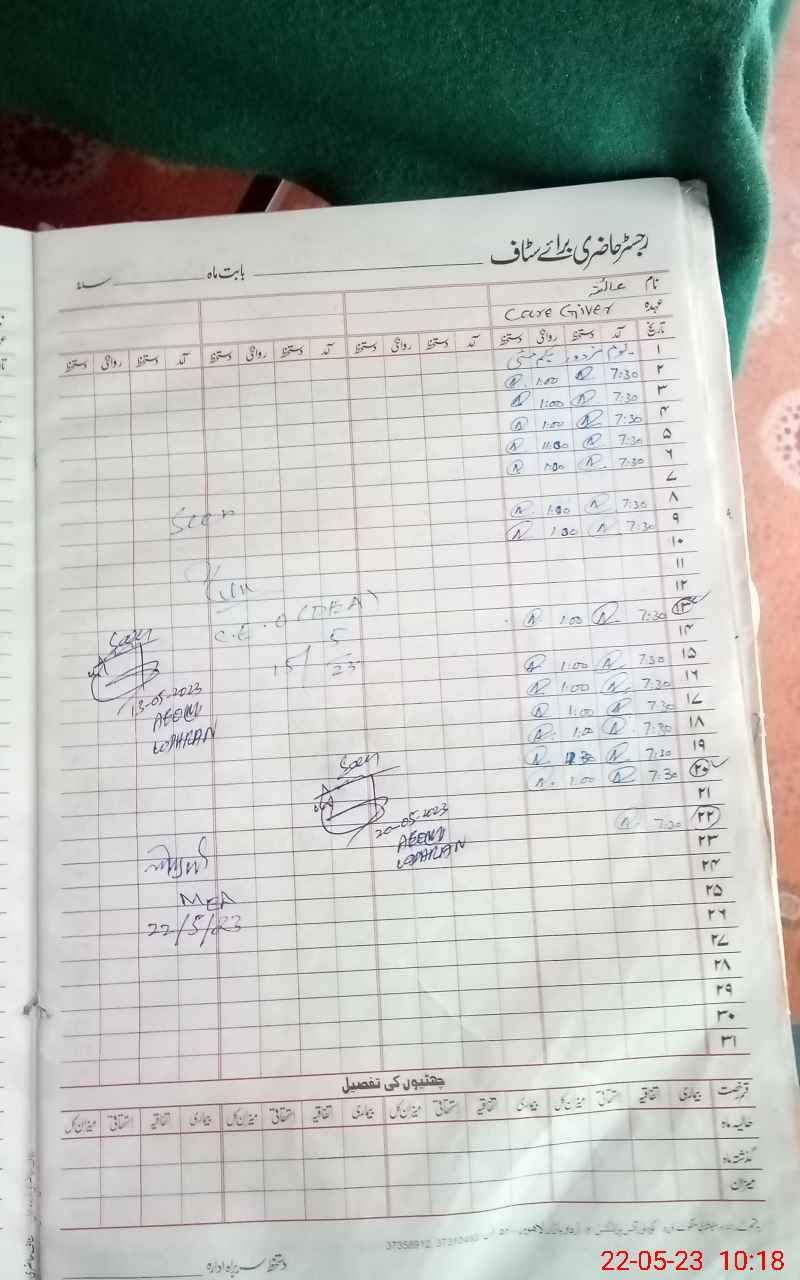 رجسٹر حاضری برائے سٹاف
بابت ماہ
نام عائشہ
عہدہ Care Giver
تاریخ آمد دستخط روانگی دستخط آمد دستخط روانگی دستخط آمد دستخط روانگی دستخط آمد دستخط روانگی دستخط
۱ یوم مزدور یکم مئی
۲ 7:30 1:00
۳ 7:30 1:00
۴ 7:30 1:00
۵ 7:30
۶ 7:30 1:00
۷
۸ 7:30 1:00
۹ 7:30 1:00
۱۰
۱۱
۱۲
۱۳ 7:30 1:00
۱۴
۱۵ 7:30 1:00
۱۶ 7:30 1:00
۱۷ 7:30 1:00
۱۸ 7:30 1:00
۱۹ 7:30
۲۰ 7:30 1:00
۲۱
۲۲ 7:30
۲۳
۲۴
۲۵
۲۶
۲۷
۲۸
۲۹
۳۰
۳۱
Seen
C.E.O (DEA)
15/5/23
Seen
13-05-2023
AEO
LODHRAN
Seen
20-05-2023
AEO
LODHRAN
MEA
22/5/23
چھٹیوں کی تفصیل
قسم رخصت بیماری اتفاقیہ استحقاقی میزان کل بیماری اتفاقیہ استحقاقی میزان کل بیماری اتفاقیہ استحقاقی میزان کل بیماری اتفاقیہ استحقاقی میزان کل
حالیہ ماہ
گذشتہ ماہ
میزان
دستخط سربراہ ادارہ
22-05-23 10:18